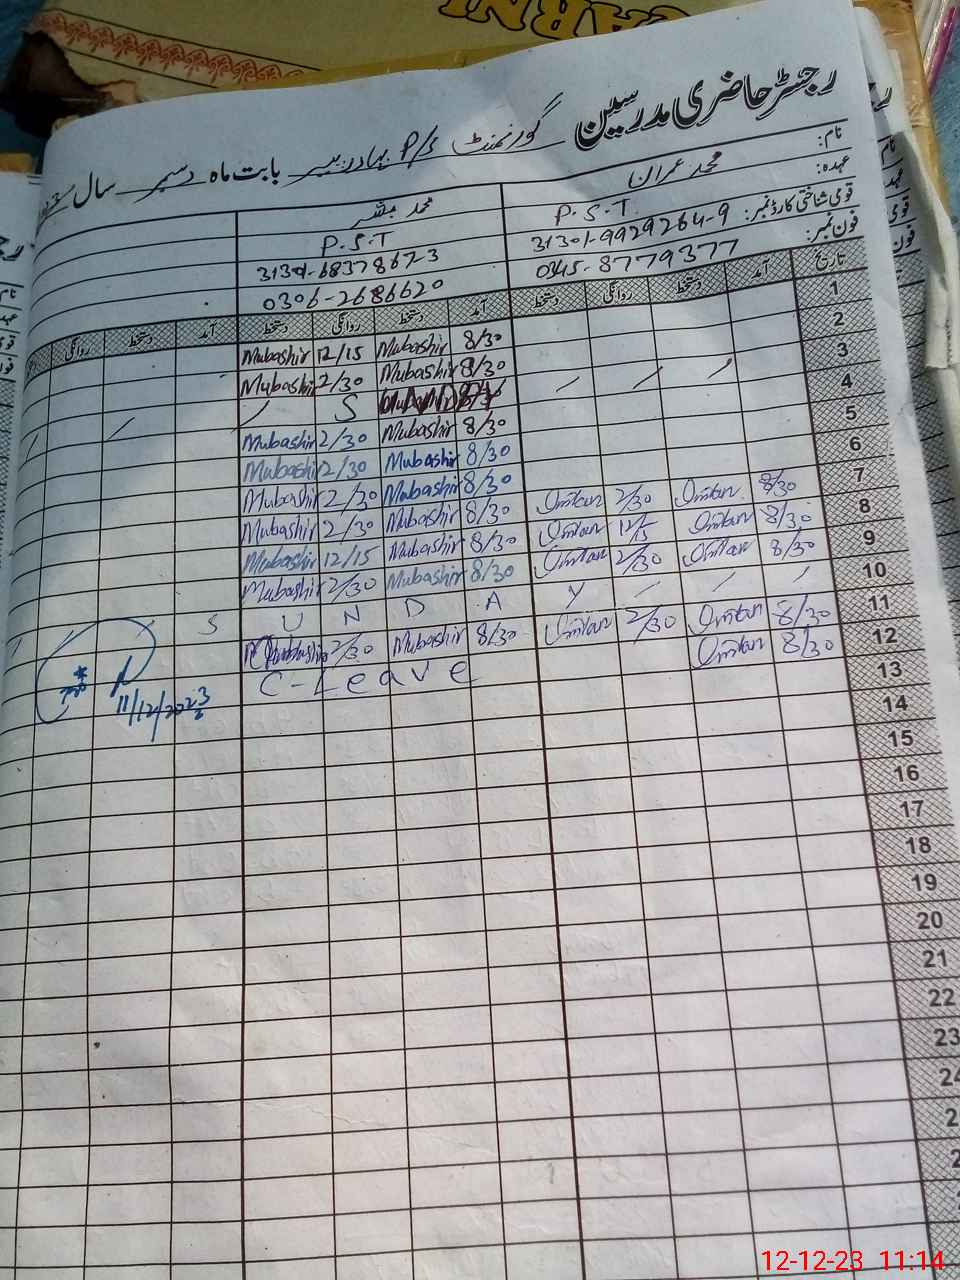 CARNI
رجسٹر حاضری مدرسین گورنمنٹ P/S بہادر بابت ماہ دسمبر سال
نام: محمد عمران محمد مبشر
عہدہ: P.S.T P.S.T
قومی شناختی کارڈ نمبر: 31301-9929264-9
فون نمبر: 0345-8779377 0306-2686620
تاریخ آمد دستخط روانگی دستخط آمد دستخط روانگی دستخط آمد دستخط روانگی
1 Mubashir 12/15 Mubashir 8/30
2 Mubashir 2/30 Mubashir 8/30
3 S
4 Mubashir 2/30 Mubashir 8/30
5 Mubashir 2/30 Mubashir 8/30
6 Mubashir 2/30 Mubashir 8/30
7 Mubashir 2/30 Mubashir 8/30 Imran 2/30 Imran 8/30
8 Mubashir 12/15 Mubashir 8/30 Imran 12/15 Imran 8/30
9 Mubashir 2/30 Mubashir 8/30 Imran 2/30 Imran 8/30
10 S U N D A Y
11 Mubashir 2/30 Mubashir 8/30 Imran 2/30 Imran 8/30
12 C-Leave Imran 8/30
11/12/2023
13
14
15
16
17
18
19
20
21
22
23
24
12-12-23 11:14